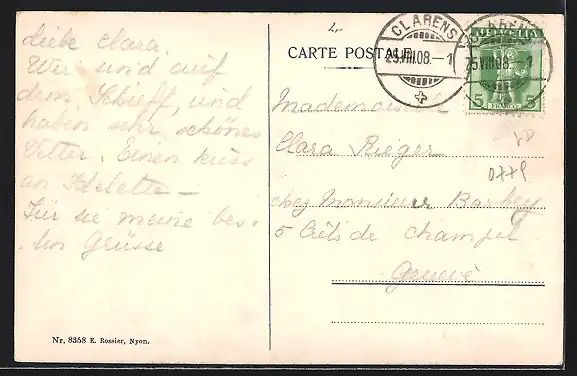 liebe Clara.
Wir sind auf
dem Schiff, und
haben sehr schönes
Vetter. Einen kuss
an Idelette –
Für sie meine bes-
ten Grüsse
Nr. 8358 E. Rossier, Nyon.
CARTE POSTALE
CLARENS
25.VIII.08.–1
CLARENS
25.VIII.08.–1
HELVETIA
5 5
FRANCO
Mademoiselle
Clara Rieger
chez Monsieur Barbey
5 Crêts de Champel
Genève